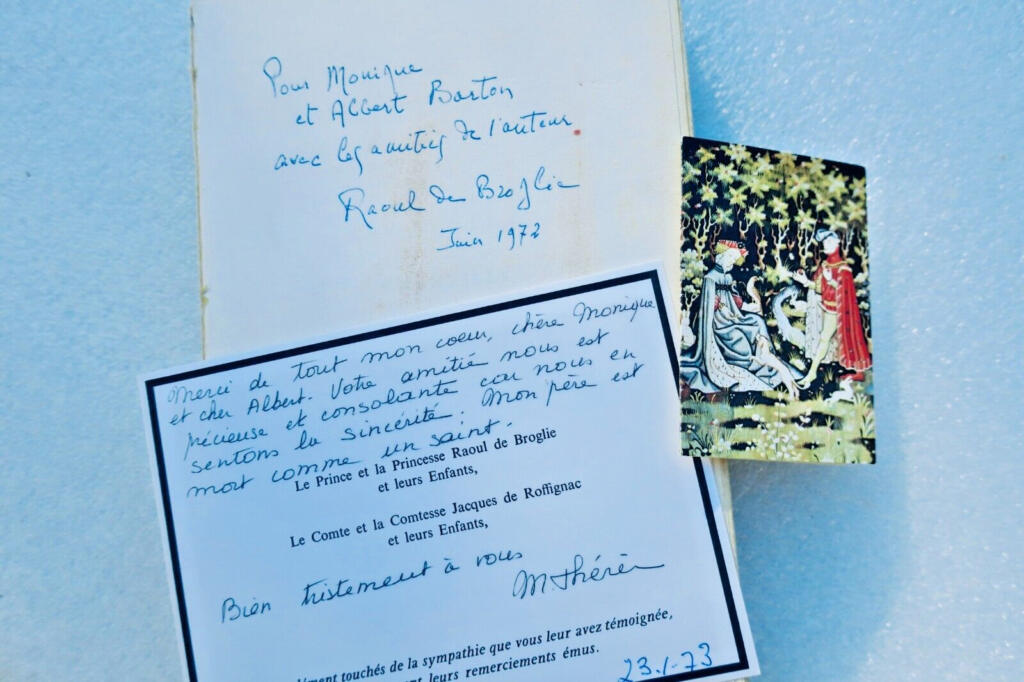 Pour Monique
et Albert Barton
avec les amitiés de l'auteur.
Raoul de Broglie
Juin 1972
Merci de tout mon coeur, chère Monique
et cher Albert. Votre amitié nous est
précieuse et consolante car nous en
sentons la sincérité. Mon père est
mort comme un saint.
Le Prince et la Princesse Raoul de Broglie
et leurs Enfants,
Le Comte et la Comtesse Jacques de Roffignac
et leurs Enfants,
Bien tristement à vous
touchés de la sympathie que vous leur avez témoignée,
leurs remerciements émus.
23.1-73